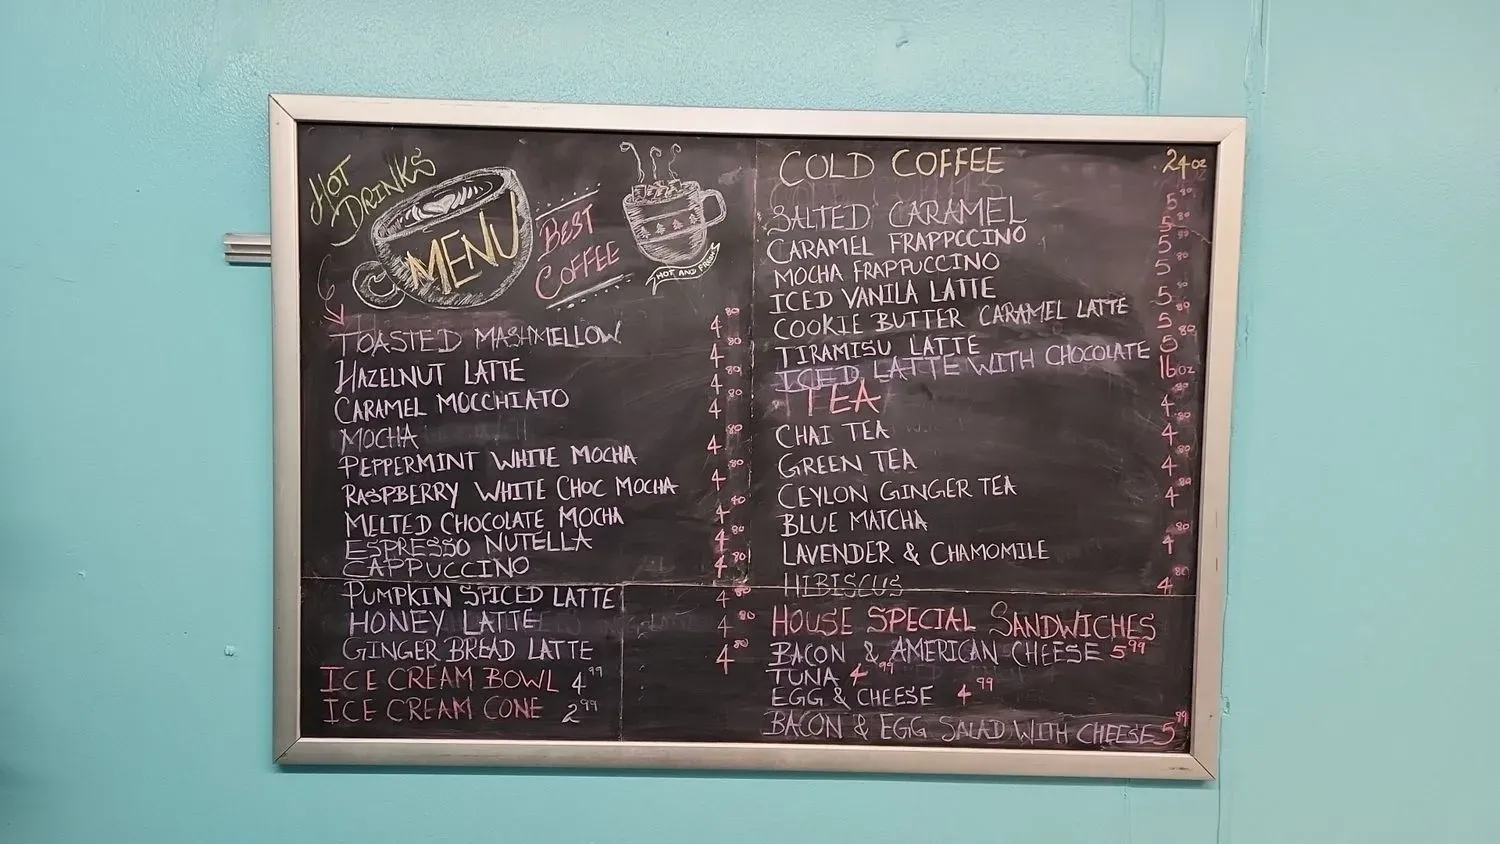 HOT
DRINKS
MENU
BEST
COFFEE
HOT AND
TOASTED MASHMELLOW 4 80
HAZELNUT LATTE 4 80
CARAMEL MOCCHIATO 4 80
MOCHA 4 80
PEPPERMINT WHITE MOCHA 4 80
RASPBERRY WHITE CHOC MOCHA 4 80
MELTED CHOCOLATE MOCHA 4 80
ESPRESSO NUTELLA 4 80
CAPPUCCINO 4 80
PUMPKIN SPICED LATTE 4 80
HONEY LATTE 4 80
GINGER BREAD LATTE 4 80
ICE CREAM BOWL 4 99
ICE CREAM CONE 2 99
COLD COFFEE 24 oz
SALTED CARAMEL 5 80
CARAMEL FRAPPCCINO 5 80
MOCHA FRAPPUCCINO 5 80
ICED VANILA LATTE 5 80
COOKIE BUTTER CARAMEL LATTE 5 80
TIRAMISU LATTE 5 80
ICED LATTE WITH CHOCOLATE 5 80
TEA 16 oz
CHAI TEA 4 80
GREEN TEA 4 80
CEYLON GINGER TEA 4 80
BLUE MATCHA 4
LAVENDER & CHAMOMILE 4 80
HIBISCUS 4 80
HOUSE SPECIAL SANDWICHES
BACON & AMERICAN CHEESE 5 99
TUNA 4 99
EGG & CHEESE 4 99
BACON & EGG SALAD WITH CHEESE 5 99